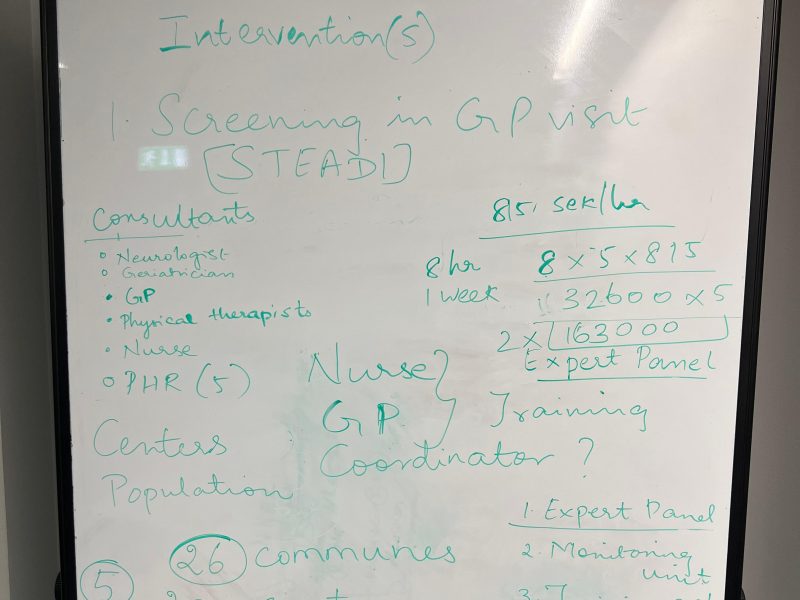 Intervention(s)
1. Screening in GP visit
[STEADI]
Consultants
Neurologist
Geriatrician
GP
Physical therapists
Nurse
PHR (5)
Centers
Population
815. sek/hr
8 hr
1 week
8 x 5 x 815
32600 x 5
2 x 163000
Expert Panel
Nurse
GP
Training
Coordinator ?
26 communes
5
1. Expert Panel
2. Monitoring
unit
3.